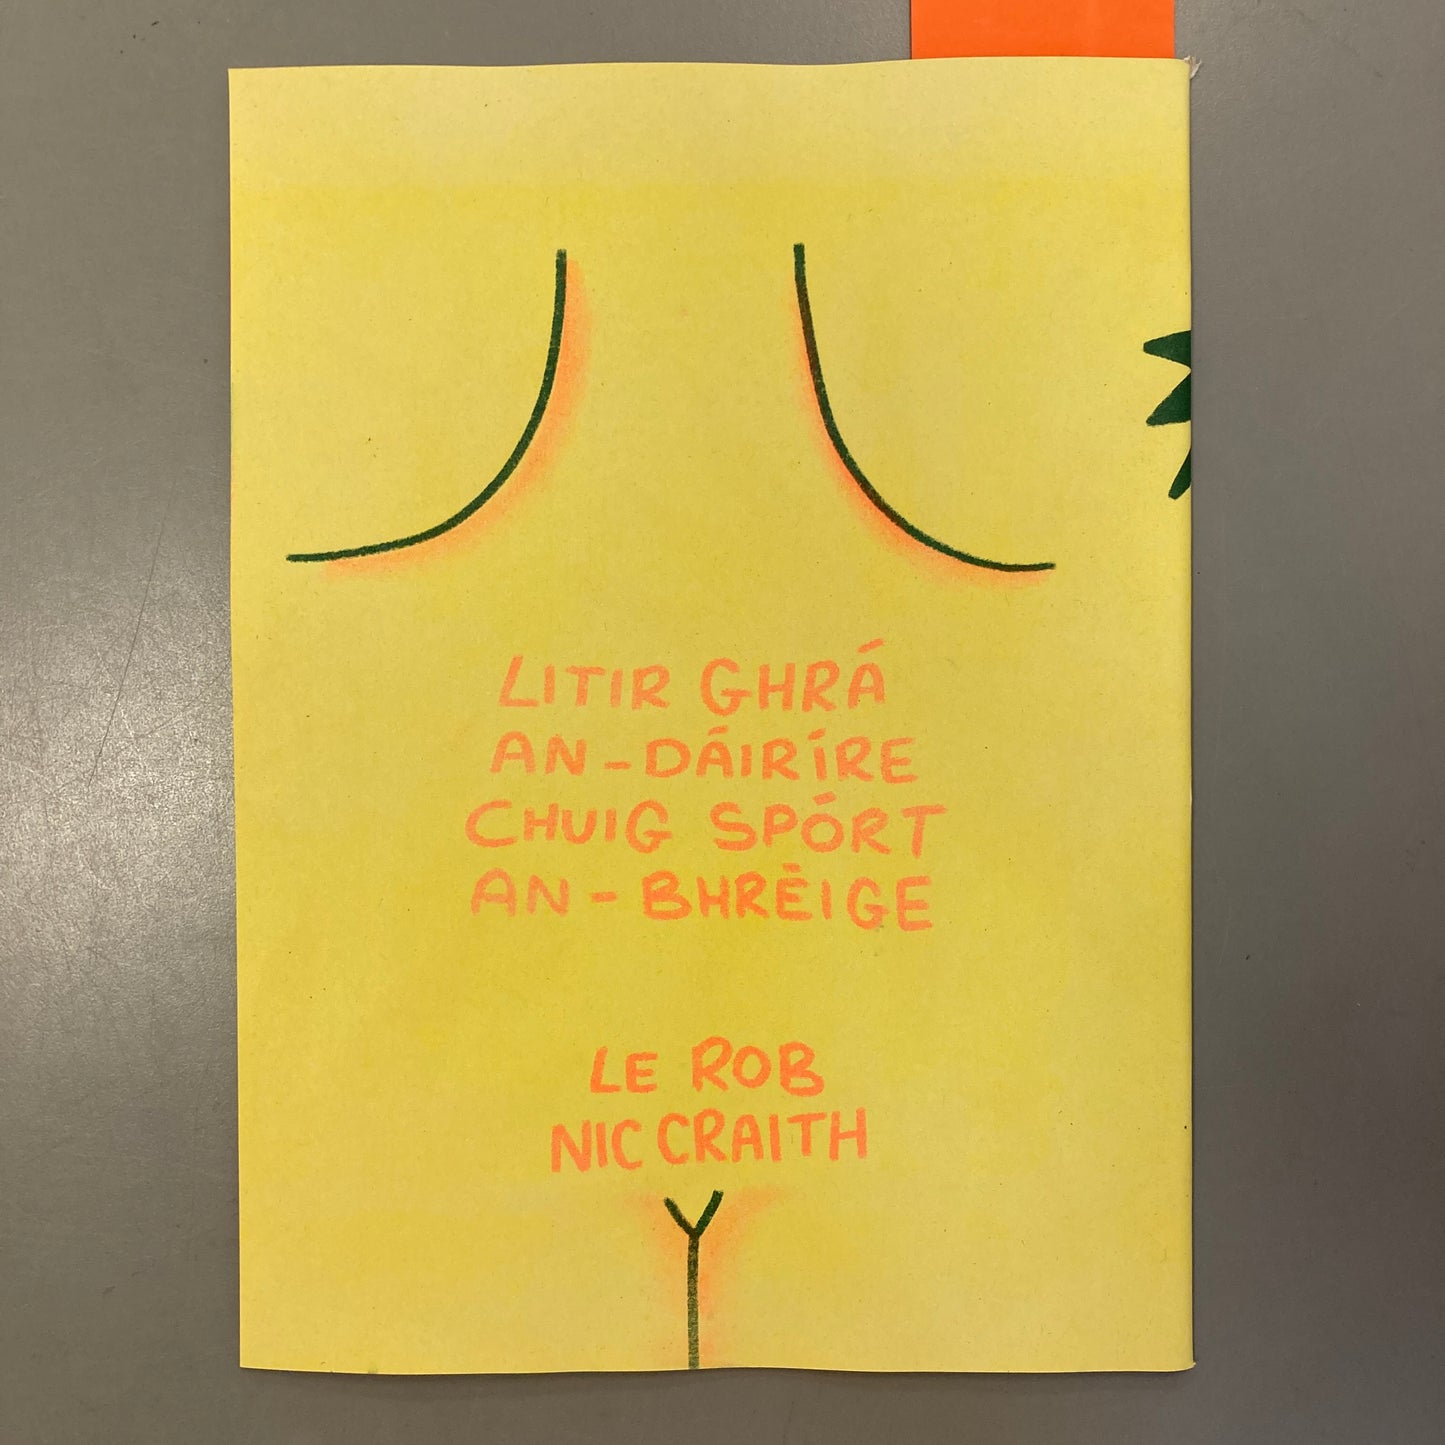 LITIR GHRÁ
AN-DÁIRÍRE
CHUIG SPÓRT
AN-BHRÉIGE
LE ROB
NIC CRAITH